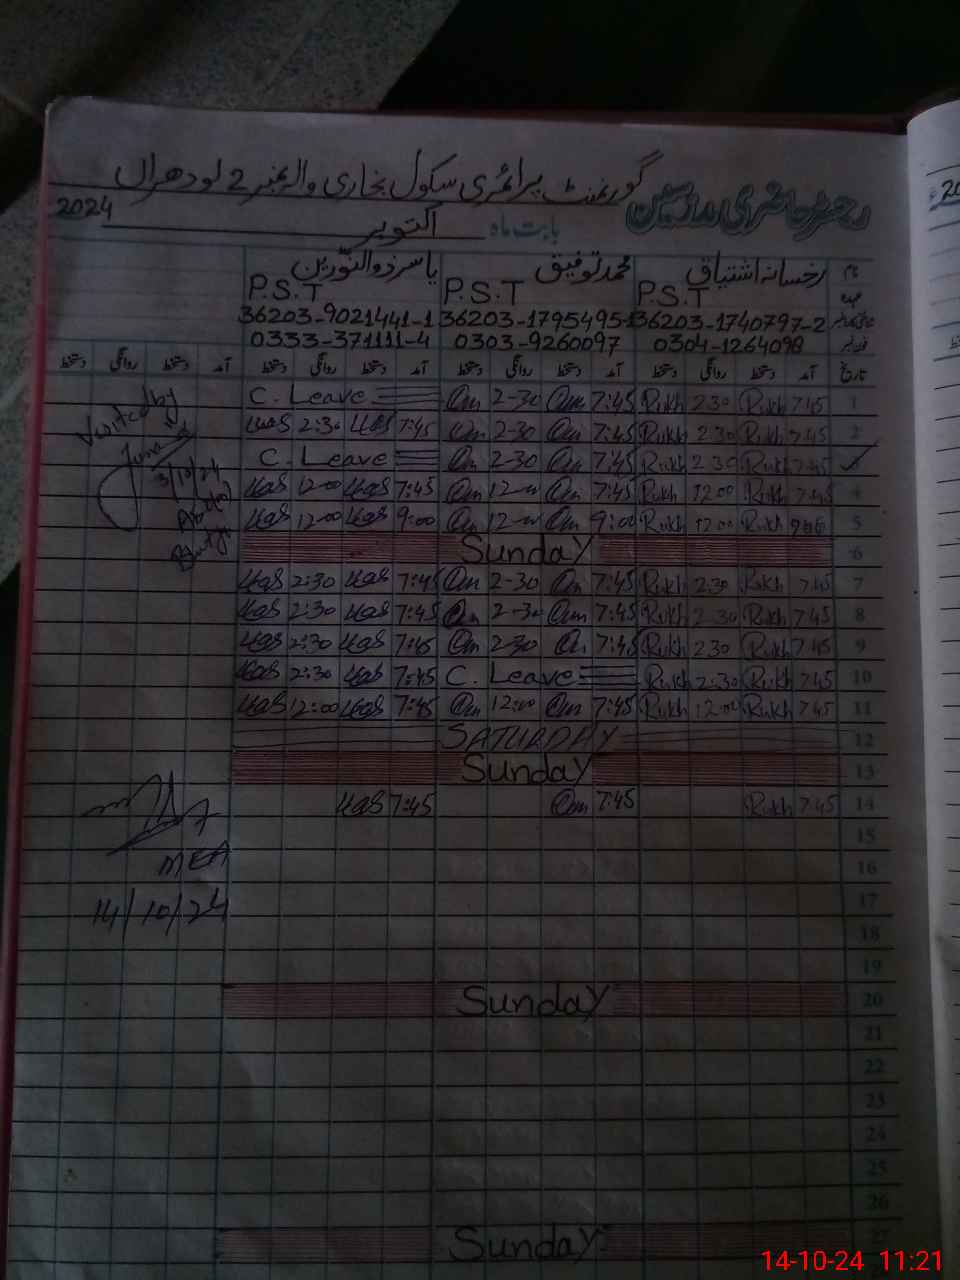 رجسٹر حاضری مدرسین گورنمنٹ پرائمری سکول بخاری والہ نمبر 2 لودھراں
بابت ماہ اکتوبر 2024
نام رخسانہ اشتیاق محمد توفیق یاسر ذوالنورین
عہدہ P.S.T P.S.T P.S.T
36203-1740797-2 36203-1795495-1 36203-9021441-1
0304-1264098 0303-9260097 0333-371111-4
تاریخ آمد دستخط روانگی دستخط آمد دستخط روانگی دستخط آمد دستخط روانگی دستخط آمد دستخط روانگی دستخط
1 7:45 Rukh 2:30 Rukh 7:45 2-30 C. Leave
2 7:45 Rukh 2:30 Rukh 7:45 2-30 7:45 2:30
3 7:45 Rukh 2:30 Rukh 7:45 2-30 C. Leave
4 7:45 Rukh 12:00 Rukh 7:45 12-00 7:45 12:00
5 9:00 Rukh 12:00 Rukh 9:00 12-00 9:00 12:00
6 Sunday
7 7:45 Rukh 2:30 Rukh 7:45 2-30 7:45 2:30
8 7:45 Rukh 2:30 Rukh 7:45 2-30 7:45 2:30
9 7:45 Rukh 2:30 Rukh 7:45 2-30 7:45 2:30
10 7:45 Rukh 2:30 Rukh C. Leave 7:45 2:30
11 7:45 Rukh 12:00 Rukh 7:45 12:00 7:45 12:00
12 SATURDAY
13 Sunday
14 7:45 Rukh 7:45 7:45
15
16
17
18
19
20 Sunday
21
22
23
24
25
26
27 Sunday
Visited by
3/10/24
MEA
14/10/24
14-10-24 11:21